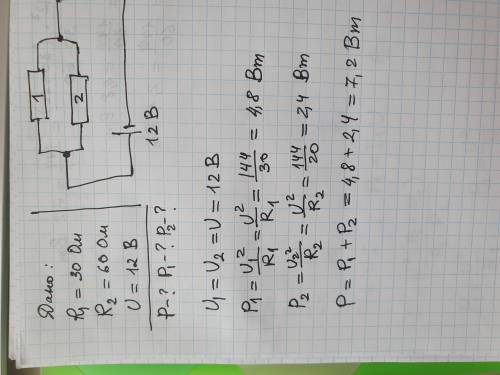 Дано:
R₁ = 30 Ом
R₂ = 60 Ом
U = 12 В
P-? P₁-? P₂-?
1
2
12 В
U₁ = U₂ = U = 12 В
P₁ = U₁²/R₁ = U²/R₁ = 144/30 = 4,8 Вт
P₂ = U₂²/R₂ = U²/R₂ = 144/20 = 2,4 Вт
P = P₁ + P₂ = 4,8 + 2,4 = 7,2 Вт